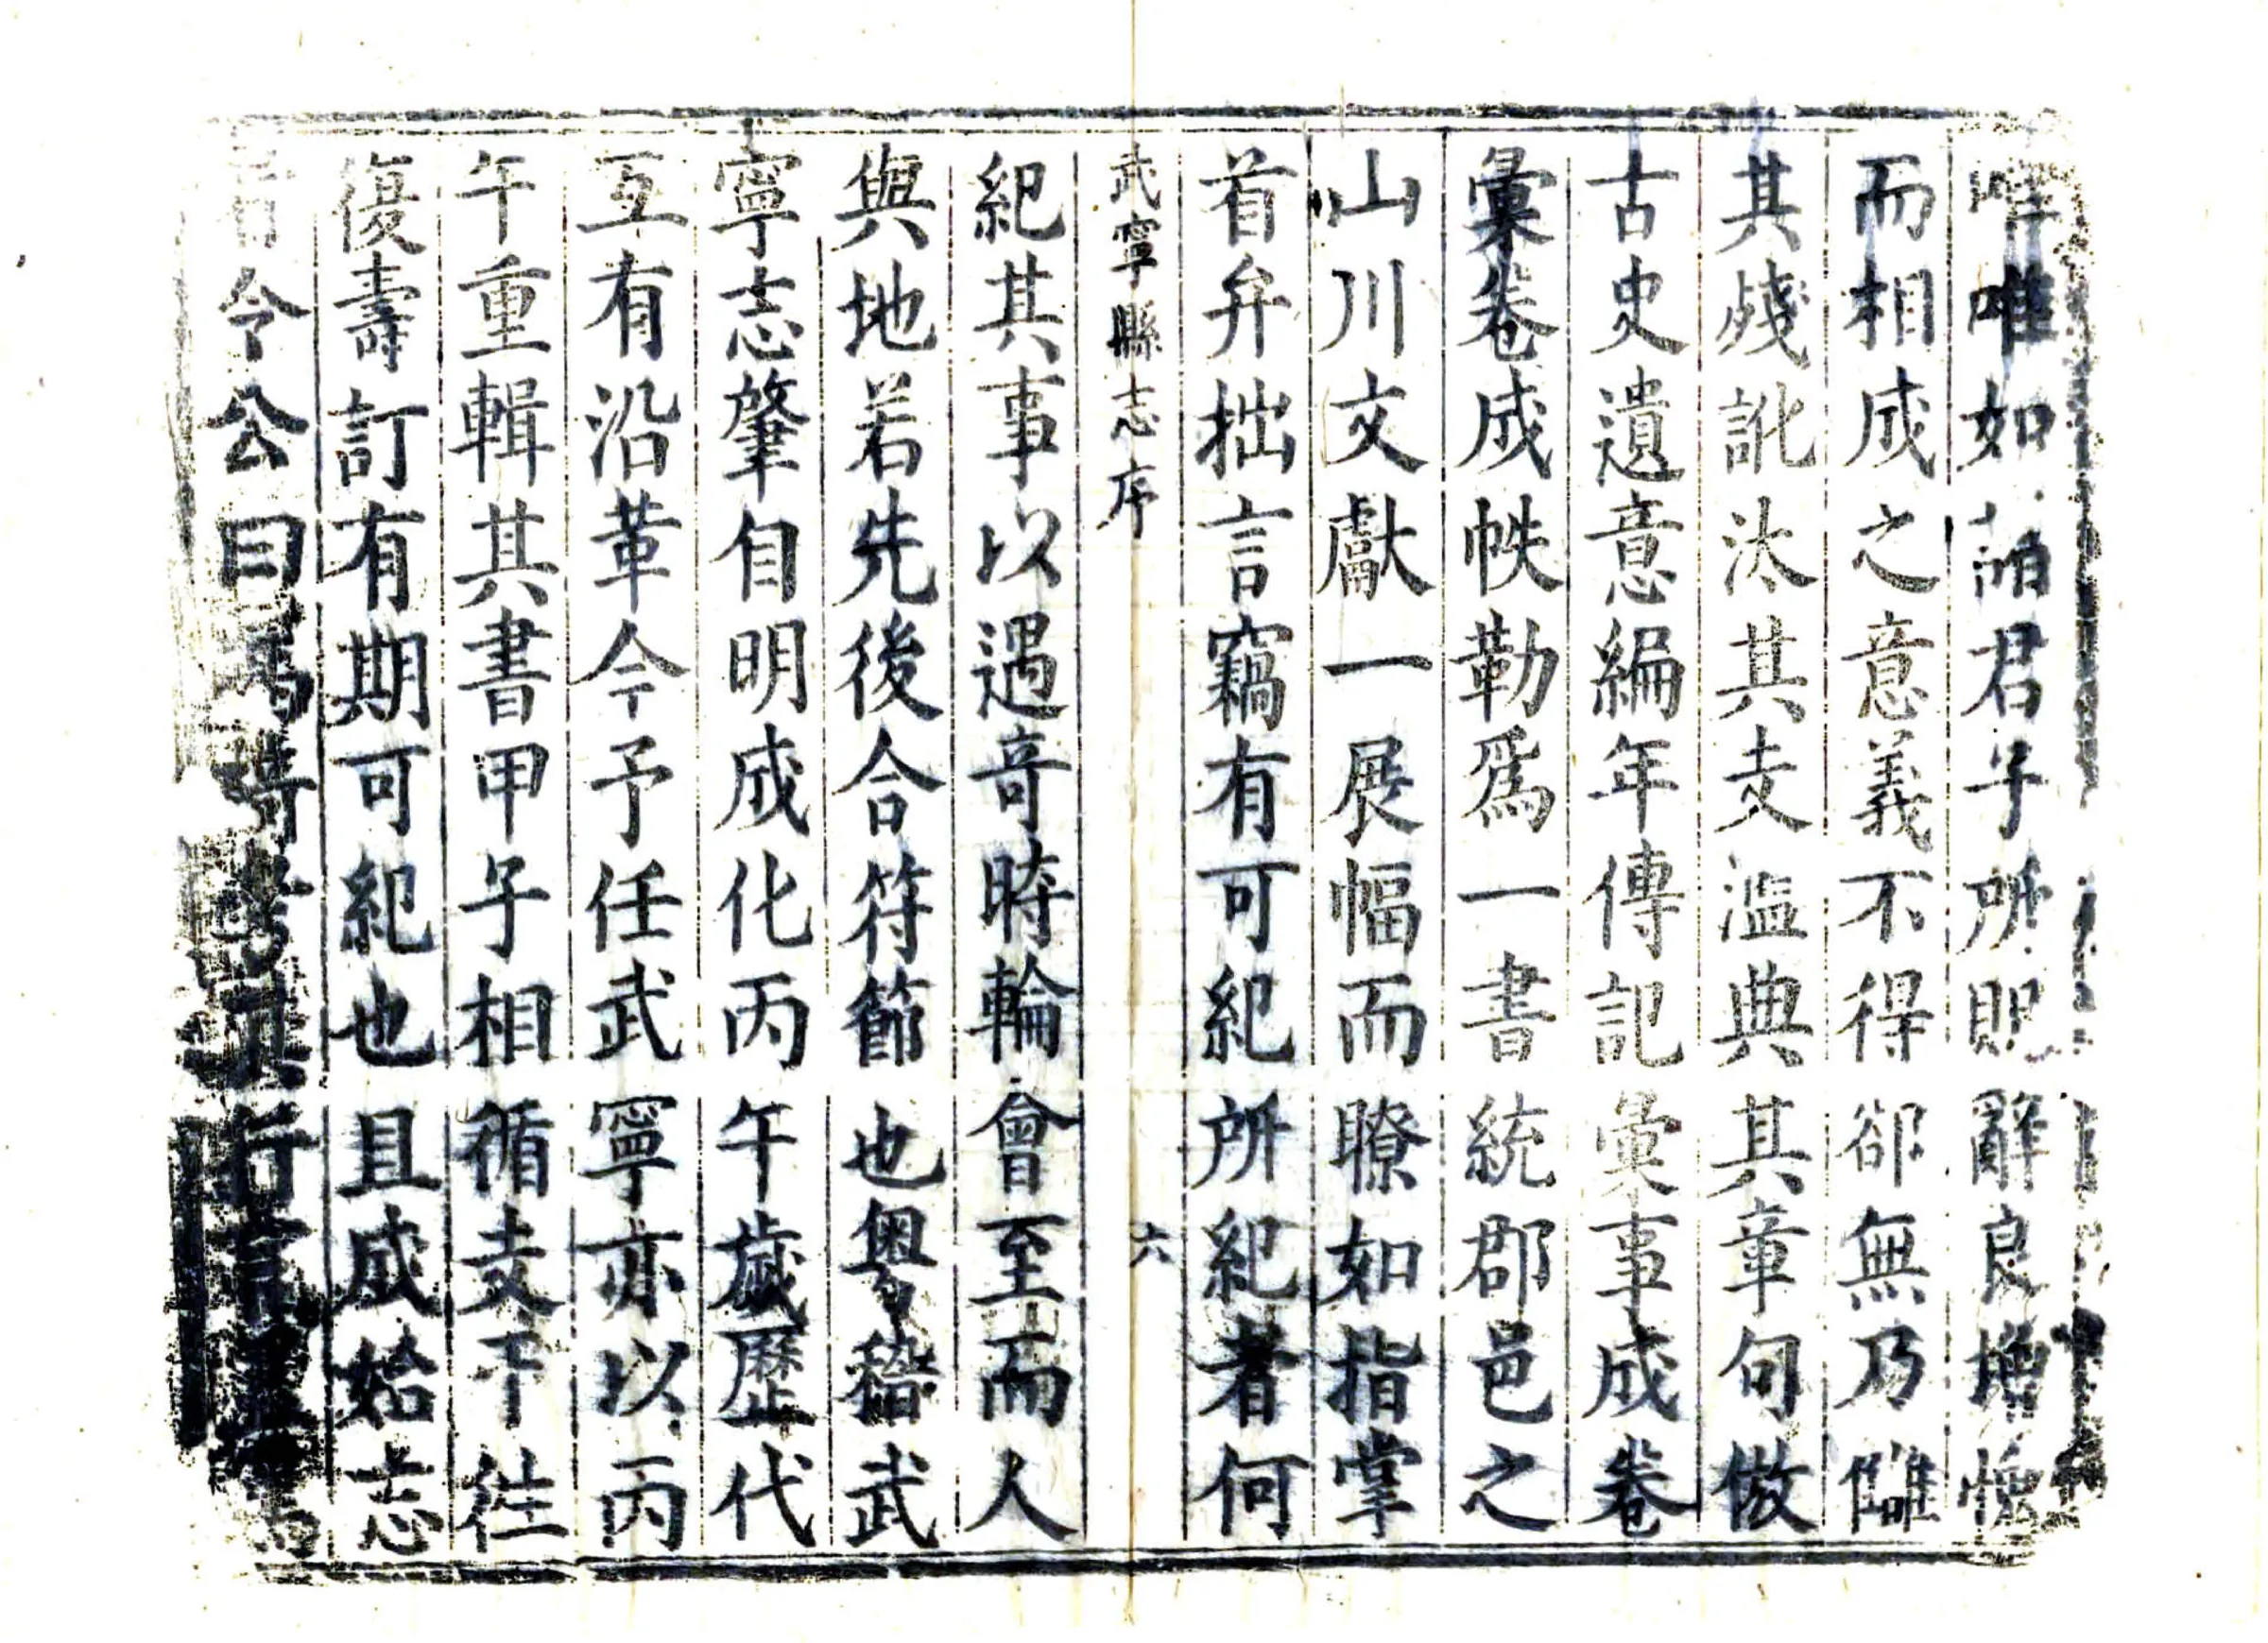 唯唯如諸君子所貺辭良增愧
而相成之意義不得卻無乃讎
其殘訛汰其支濫典其章句倣
古史遺意編年傳記彙事成卷
彙卷成帙勒爲一書統郡邑之
山川文獻一展幅而瞭如指掌
首弁拙言竊有可紀所紀者何
武寧縣志序
六
紀其事以遇竒時輪會至而人
與地若先後合符節也粵稽武
寧志肇自明成化丙午歲歷代
互有沿革今予任武寧亦以丙
午重輯其書甲子相循支干徃
復壽訂有期可紀也且成始志
令公曰馮